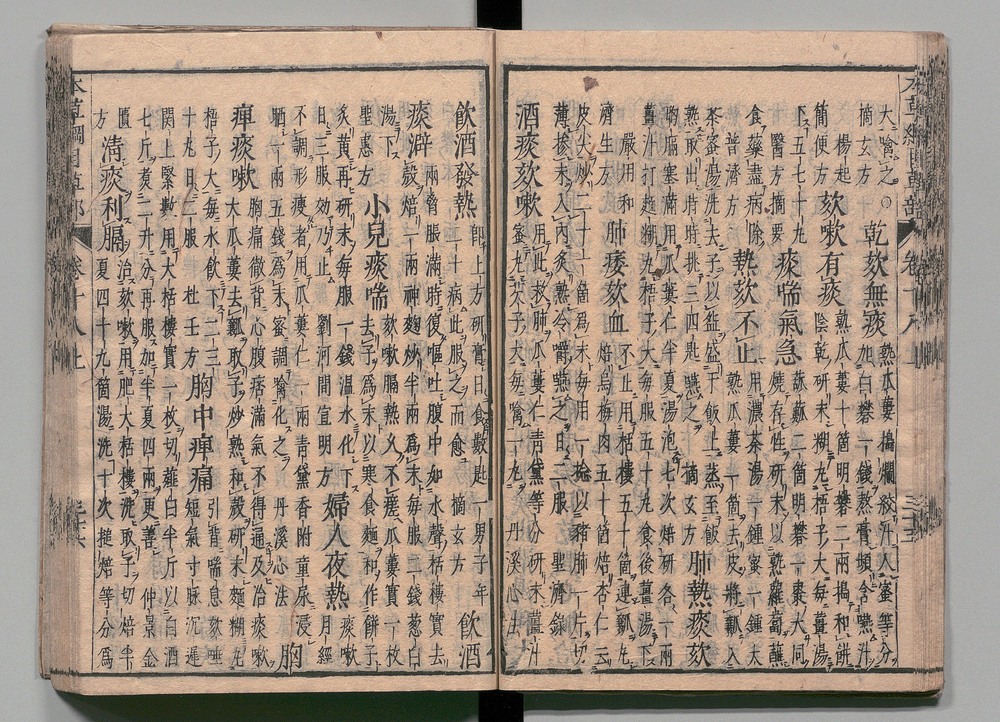 大噙之○乾欬無痰熟瓜蔞搗爛絞汁入蜜等分
加白礬一錢熬膏頻含嚥汁
摘玄方欬嗽有痰熟瓜蔞十箇明礬二兩搗和餅
楊起陰乾研末糊丸梧子大每薑湯
簡便方
下五七十丸痰喘氣急蔴蘇二箇明礬一棗大同
燒存性研末以熟蘿蔔蘸
醫方摘要
食藥盡病除熱欬不止用濃茶湯一鍾蜜一鍾大
熟瓜蔞一箇去皮將瓤入
普濟方
茶蜜湯洗去子以盌盛于飯上蒸至飯
熟取出時時挑三四匙嚥之摘玄方肺熱痰欬
胸膈塞滿用瓜蔞仁半夏湯泡七次焙研各一兩
薑汁打麪糊丸梧子大每服五十丸食後薑湯下
嚴用和肺痿欬血不止用栝樓五十箇連瓤瓦
焙烏梅肉五十箇焙杏仁去
濟生方
皮尖炒二十一箇爲末每用一捻以猪肺一片切
薄摻末入內炙熟冷嚼嚥之日二服聖濟錄
酒痰欬嗽用此救肺瓜蔞仁青黛等分研末薑汁
蜜丸芡子大每噙一丸丹溪心出
飲酒發熱卽上方研膏日食數匙一男子年
二十病此服之而愈摘玄方飲酒
痰澼兩脅脹滿時復嘔吐腹中如水聲栝樓實去
殼焙一兩神麴炒半兩爲末每服二錢葱白
湯下欬嗽膈熱久不瘥瓜蔞實一枚
聖惠方小兒痰喘去子爲末以寒食麵和作餅子
炙黃再研末每服一錢溫水化下婦人夜熱痰嗽
日三服效乃止劉河間宣明方月經
不調形瘦者用瓜蔞仁一兩青黛香附童尿浸
晒一兩五錢爲末蜜調噙化之丹溪心法胸
痺痰嗽胸痛徹背心腹痞滿氣不得通及治痰嗽
大瓜蔞去瓤取子炒熟和殼研末麵糊丸
梧子大每米飲下二三胸中痺痛引背喘息欬唾
十丸日二服杜壬方短氣寸脉沉遲
關上緊數用大栝樓實一枚切薤白半斤以白酒
七斤煑二升分再服加半夏四兩更善仲景金
匱方清痰利膈治欬嗽用肥大栝樓洗取子切焙半
夏四十九箇湯洗十次搥焙等分爲